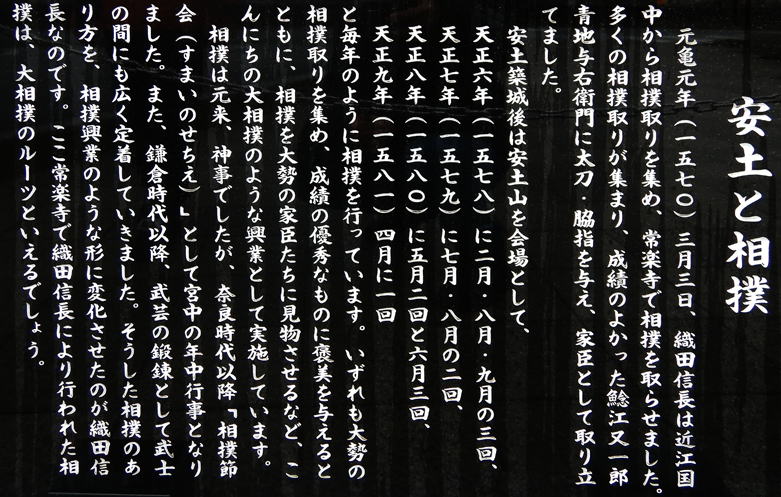 安土と相撲
元亀元年（一五七〇）三月三日、織田信長は近江国
中から相撲取りを集め、常楽寺で相撲を取らせました。
多くの相撲取りが集まり、成績のよかった鯰江又一郎
青地与右衛門に太刀・脇指を与え、家臣として取り立
てました。
安土築城後は安土山を会場として、
天正六年（一五七八）に二月・八月・九月の三回、
天正七年（一五七九）に七月・八月の二回、
天正八年（一五八〇）に五月二回と六月三回、
天正九年（一五八一）四月に一回
と毎年のように相撲を行っています。いずれも大勢の
相撲取りを集め、成績の優秀なものに褒美を与えると
ともに、相撲を大勢の家臣たちに見物させるなど、こ
んにちの大相撲のような興業として実施しています。
相撲は元来、神事でしたが、奈良時代以降「相撲節
会（すまいのせちえ）」として宮中の年中行事となり
ました。また、鎌倉時代以降、武芸の鍛錬として武士
の間にも広く定着していきました。そうした相撲のあ
り方を、相撲興業のような形に変化させたのが織田信
長なのです。ここ常楽寺で織田信長により行われた相
撲は、大相撲のルーツといえるでしょう。